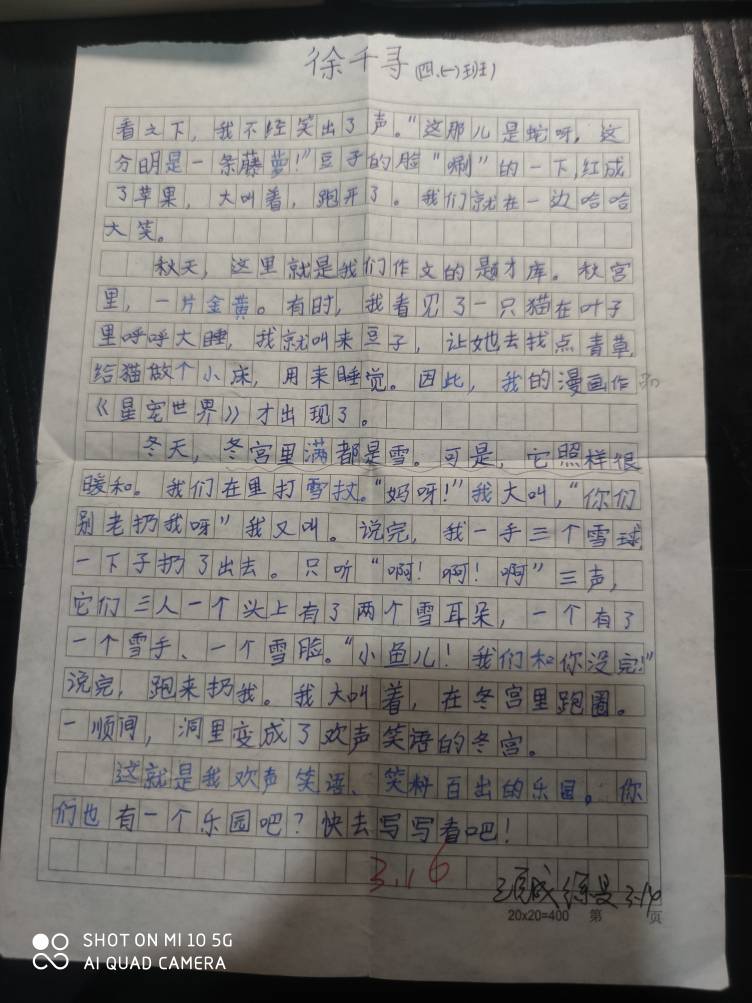 徐千寻 (四.(一)班)
看之下，我不经笑出了声。“这那儿是蛇呀，这
分明是一条藤萝！”豆子的脸“唰”的一下，红成
了苹果，大叫着，跑开了。我们就在一边哈哈
大笑。
秋天，这里就是我们作文的题才库。秋宫
里，一片金黄。有时，我看见了一只猫在叶子
里呼呼大睡，我就叫来豆子，让她去找点青草，
给猫做个小床，用来睡觉。因此，我的漫画作
《星宠世界》才出现了。
冬天，冬宫里满都是雪。可是，它照样很
暖和。我们在里打雪扙。“妈呀！”我大叫，“你们
别老扔我呀”我又叫。说完，我一手三个雪球，
一下子扔了出去。只听“啊！啊！啊”三声，
它们三人一个头上有了两个雪耳朵，一个有了
一个雪手、一个雪脸。“小鱼儿！我们和你没完！”
说完，跑来扔我。我大叫着，在冬宫里跑圈。
一顺间，洞里变成了欢声笑语的冬宫。
这就是我欢声笑语、笑料百出的乐园。你
们也有一个乐园吧？快去写写看吧！
3.16
20x20=400 第 页
SHOT ON MI 10 5G
AI QUAD CAMERA